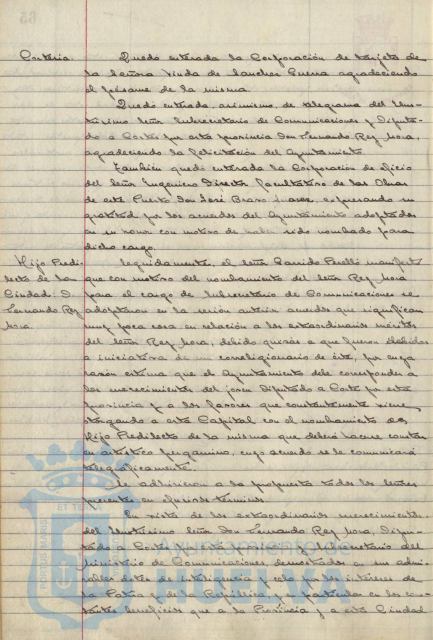 Cortesía. Quedó enterada la Corporación de tarjeta de
la Señora Viuda de Sanchez Guerra agradeciendo
el pésame de la misma.
Quedó enterada, asimismo, de telegrama del Ilus-
trísimo Señor Subsecretario de Comunicaciones y Diputa-
do a Cortes por esta provincia Don Fernando Rey Mora,
agradeciendo la felicitación del Ayuntamiento.
También quedó enterada la Corporación de oficio
del Señor Ingeniero Director facultativo de las Obras
de este Puerto Don José Bravo Suarez expresando su
gratitud por los acuerdos del Ayuntamiento adoptados
en su honor con motivo de haber sido nombrado para
dicho cargo.
Hijo Predi- Seguidamente, el Señor Garrido Perelló manifestó
lecto de la que con motivo del nombramiento del Señor Rey Mora
Ciudad. D. para el cargo de Subsecretario de Comunicaciones se
Fernando Rey adoptaron en la sesión anterior acuerdos que significan
Mora. muy poca cosa en relación a los extraordinarios méritos
del Señor Rey Mora, debido quizás a que fueron debidos
a iniciativa de un correligionario de éste, por cuya
razón estima que el Ayuntamiento debe corresponder a
los merecimientos del joven Diputado a Cortes por esta
provincia y a los favores que constantemente viene
otorgando a esta Capital con el nombramiento de
Hijo Predilecto de la misma que deberá hacerse constar
en artístico pergamino, cuyo acuerdo se le comunicará
telegráficamente.
Se adhirieron a la propuesta todos los Señores
presentes en efusivos términos.
En vista de los extraordinarios merecimientos
del Ilustrísimo Señor Don Fernando Rey Mora, Diputa-
do a Cortes por esta provincia y Subsecretario del
Ministerio de Comunicaciones, demostrados en sus admi-
rables dotes de inteligencia y celo por los intereses de
la Patria y de la República, y en particular en los cons-
tantes beneficios que a la Provincia y a esta Ciudad
Ayuntamiento de